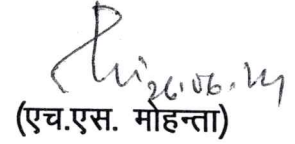 26.06.14
(एच.एस. मोहन्ता)